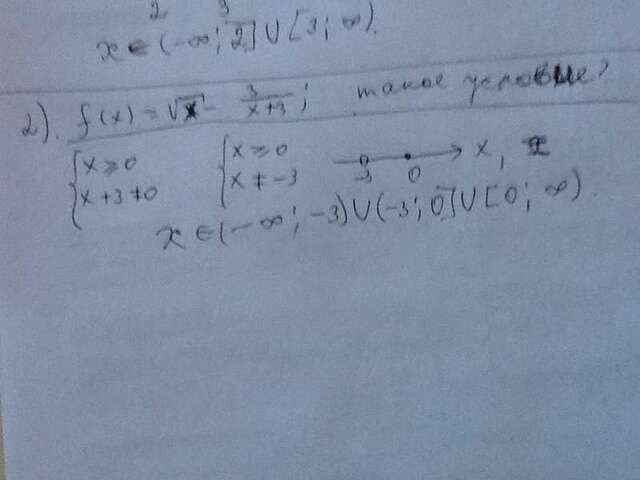 2 3
x ∈ (-∞; 2] ∪ [3; ∞).
2). f(x) = √x - 3/(x+3); такое условие?
{x ≥ 0 {x ≥ 0
{x + 3 ≠ 0 {x ≠ -3
-3 0 x,
x ∈ (-∞; -3) ∪ (-3; 0] ∪ [0; ∞).